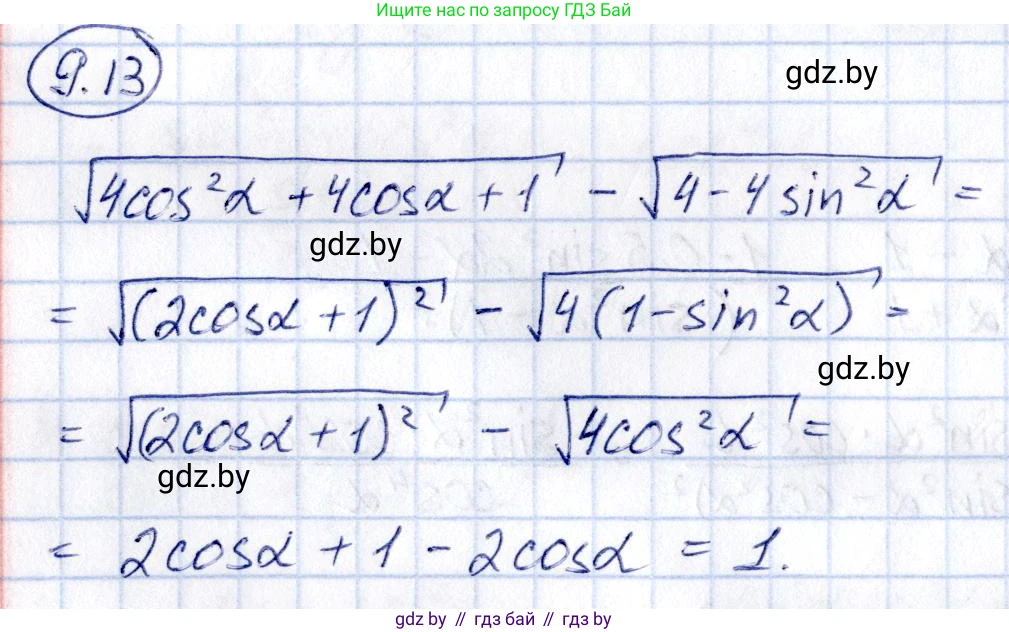 Ищите нас по запросу ГДЗ Бай
9.13
gdz.by
√(4cos²α + 4cosα + 1) − √(4 − 4 sin²α) =
gdz.by
= √((2cosα + 1)²) − √(4(1 − sin²α)) =
gdz.by
= √((2cosα + 1)²) − √(4cos²α) =
gdz.by
= 2cosα + 1 − 2cosα = 1.
gdz.by // гдз бай // gdz.by